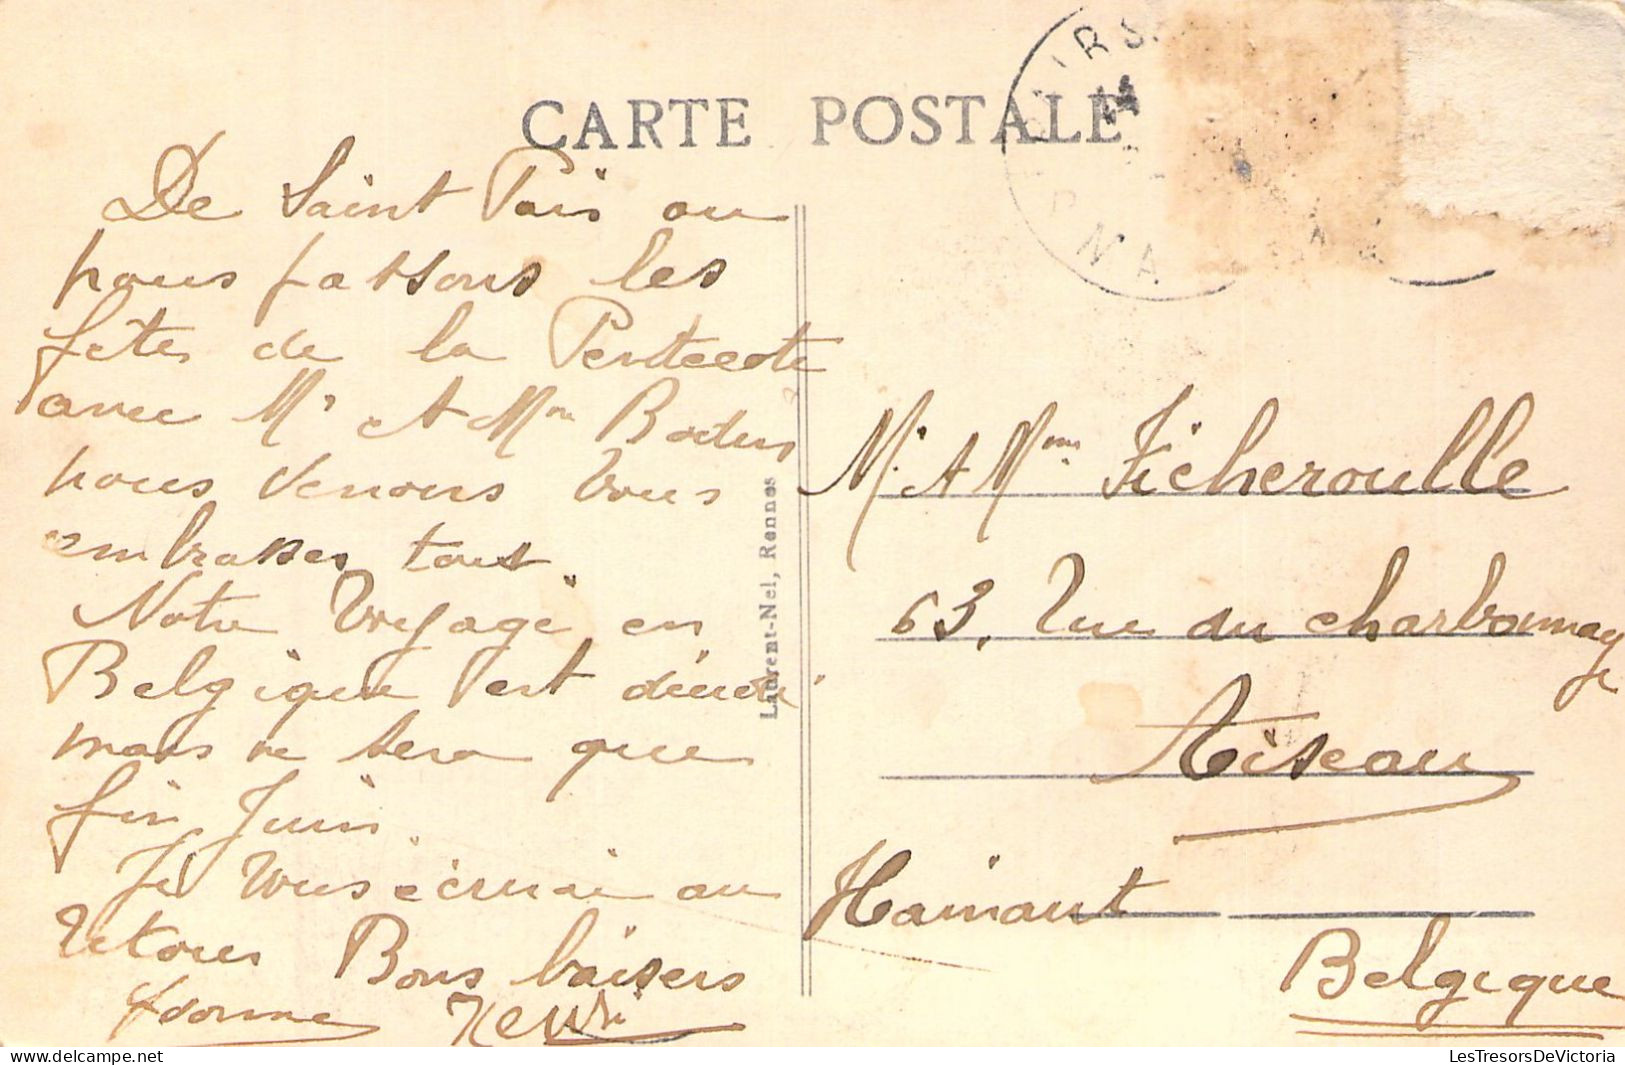 CARTE POSTALE
De Saint Pair ou
nous passons les
fêtes de la Pentecote
avec Mr et Mme Bodin
nous venons vous
embrasser tous.
Notre Voyage en
Belgique est
mais ne sera que
fin Juin.
Je vous écrirai au
retour Bons baisers
Yvonne Henri
Laurent-Nel, Rennes
Mr et Mme Ficheroulle
63, rue du charbonnage
Aiseau
Hainaut
Belgique
LesTresorsDeVictoria